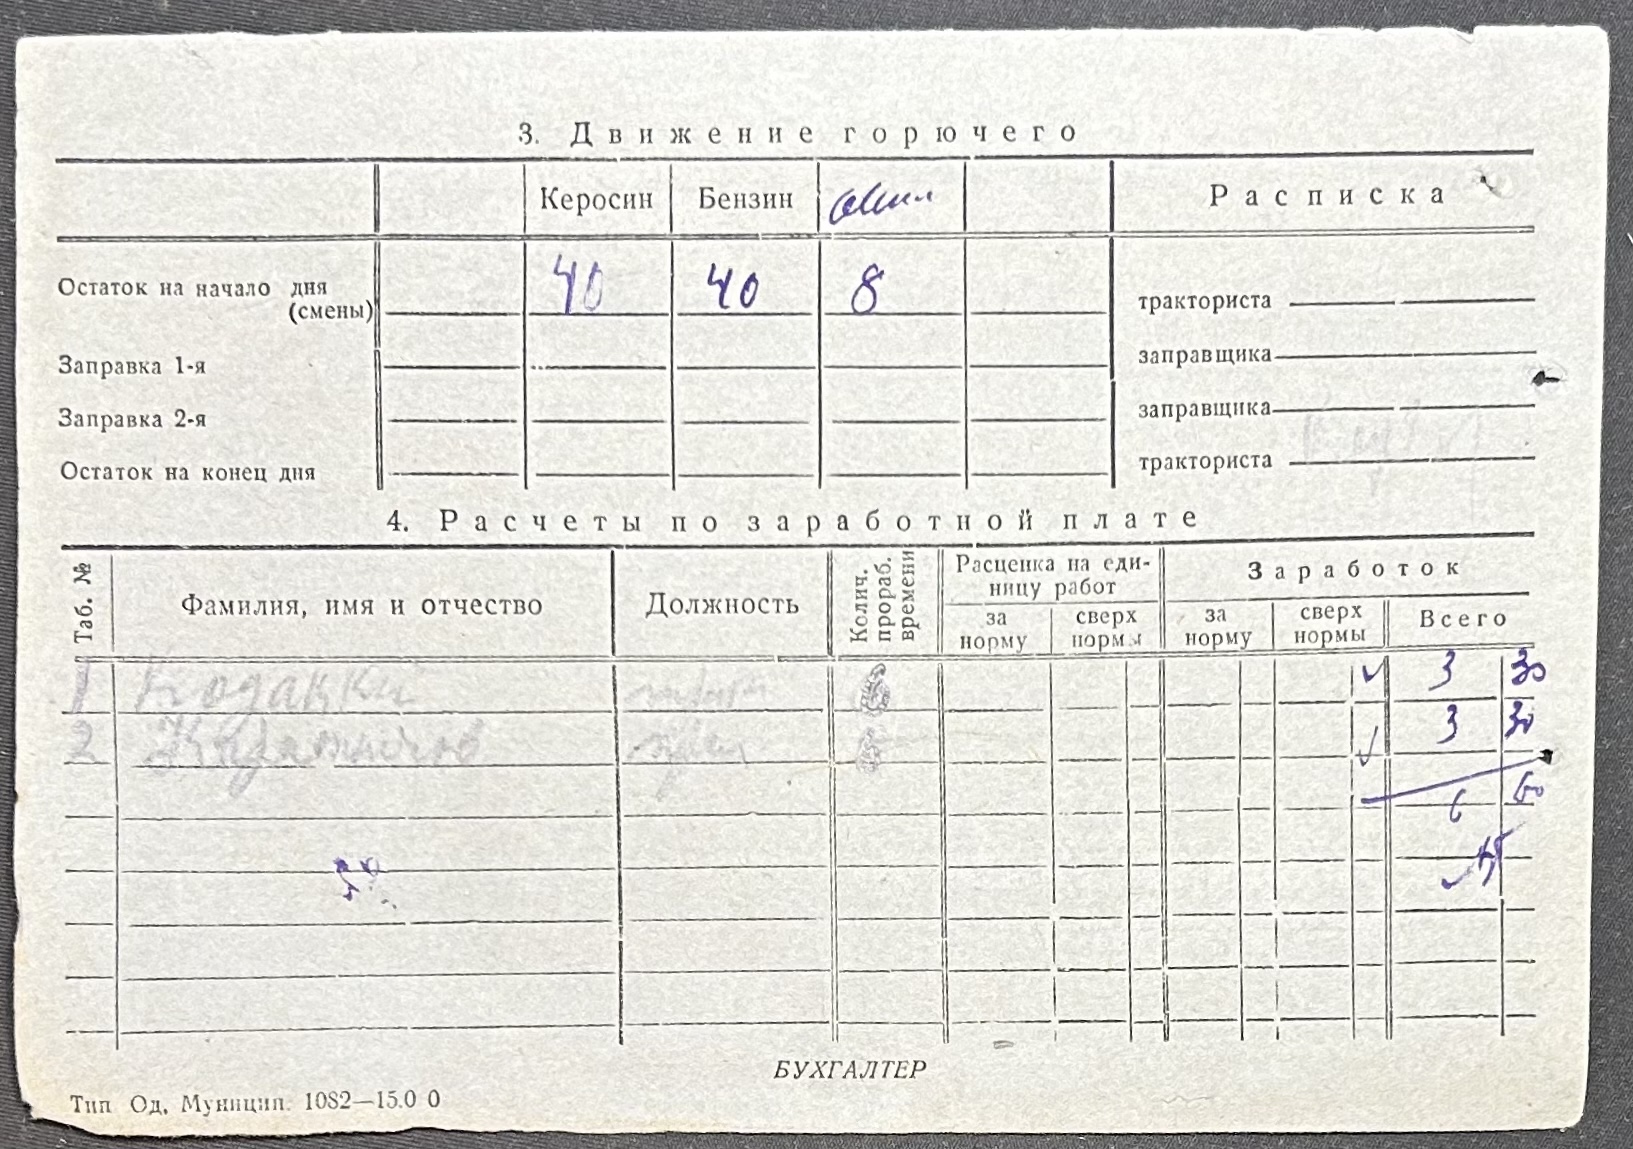 3. Движение горючего
Керосин Бензин Расписка
Остаток на начало дня (смены) 40 40 8 тракториста
Заправка 1-я заправщика
Заправка 2-я заправщика
Остаток на конец дня тракториста
4. Расчеты по заработной плате
Таб. № Фамилия, имя и отчество Должность Колич. прораб. времени Расценка на единицу работ Заработок
за норму сверх нормы за норму сверх нормы Всего
1 3 30
2 3 30
6 60
БУХГАЛТЕР
Тип Од. Муницип. 1082—15.0 0